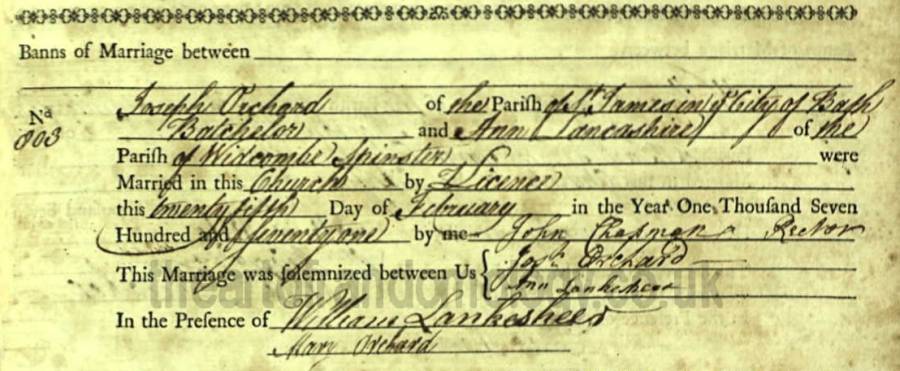 Banns of Marriage between
Nº 803 Joseph Orchard of the Parish of St. James in ye City of Bath
Batchelor and Ann Lancashire of the
Parish of Widcombe Spinster were
Married in this Church by Licence
this twenty fifth Day of February in the Year One Thousand Seven
Hundred and Seventy one by me John Chapman Rector
This Marriage was solemnized between Us { Josh. Orchard
Ann Lankesheer
In the Presence of William Lankesheer
Mary Orchard